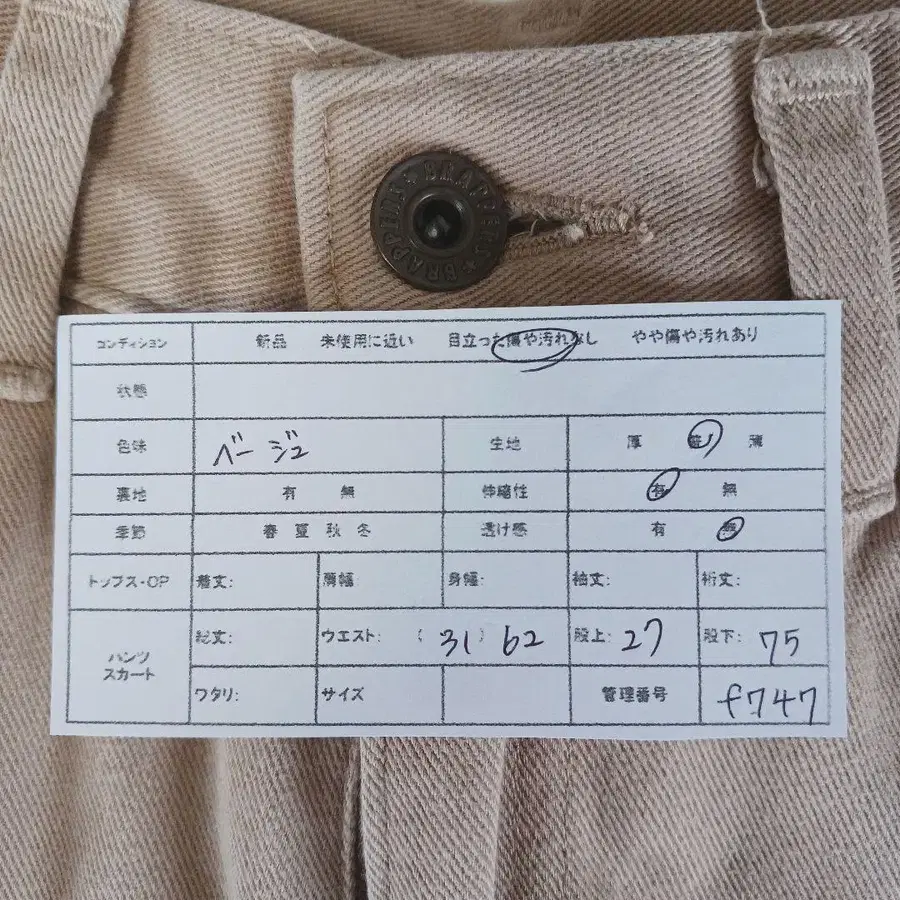 BRAPPERS ★ BRAPPERS ★
コンディション 新品 未使用に近い 目立った傷や汚れなし やや傷や汚れあり
状態
色味 ベージュ 生地 厚 普 薄
裏地 有 無 伸縮性 有 無
季節 春 夏 秋 冬 透け感 有 無
トップス・OP 着丈: 肩幅: 身幅: 袖丈: 裄丈:
パンツ
スカート
総丈: ウエスト: (31) 62 股上: 27 股下: 75
ワタリ: サイズ 管理番号 f747